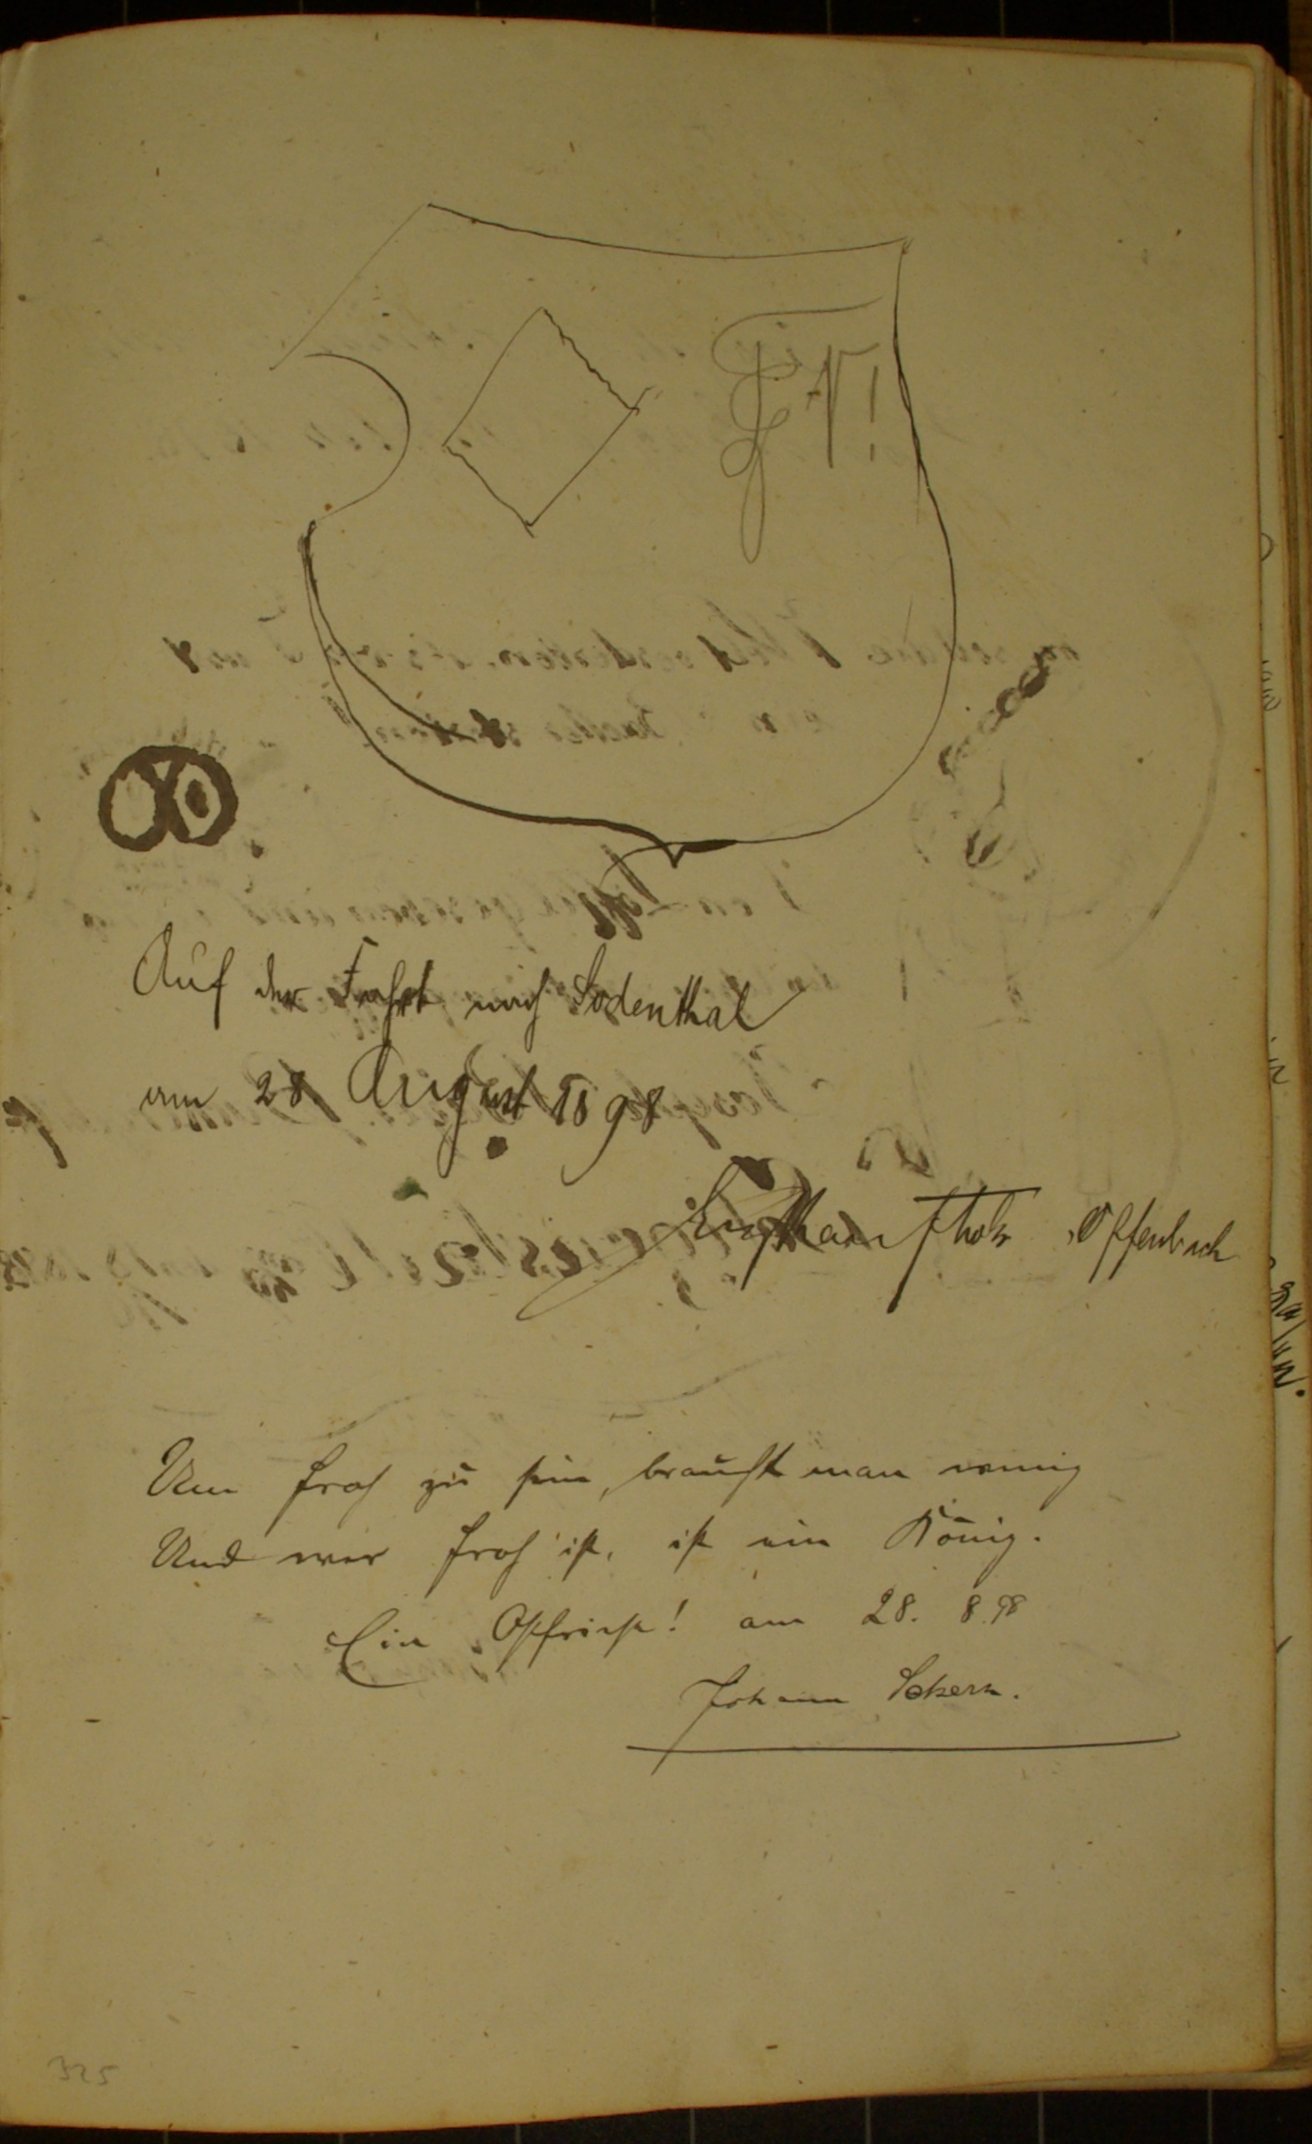 Auf der Fahrt nach Sodenthal
am 28 August 1898
Offenbach
Um froh zu sein, braucht man wenig
Und wer froh ist, ist ein König.
Ein Ostfriese! am 28. 8.98
Johann
325